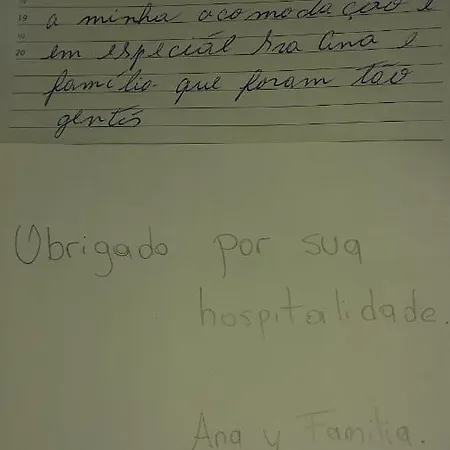 19 a minha acomodação e
20 em especiál Sra Ana e
família que foram tão
gentis
Obrigado por sua
hospitalidade.
Ana y Familia.